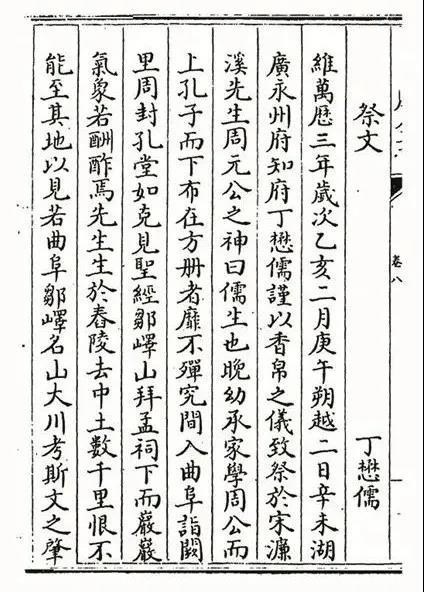 卷八
祭文 丁懋儒
維萬歷三年歲次乙亥二月庚午朔越二日辛未湖
廣永州府知府丁懋儒謹以香帛之儀致祭於宋濂
溪先生周元公之神曰儒生也晚幼承家學周公而
上孔子而下布在方册者靡不殫究間入曲阜詣闕
里周封孔堂如克見聖經鄒嶧山拜孟祠下而巖巖
氣象若酬酢焉先生生於舂陵去中土數千里恨不
能至其地以見若曲阜鄒嶧名山大川考斯文之肇